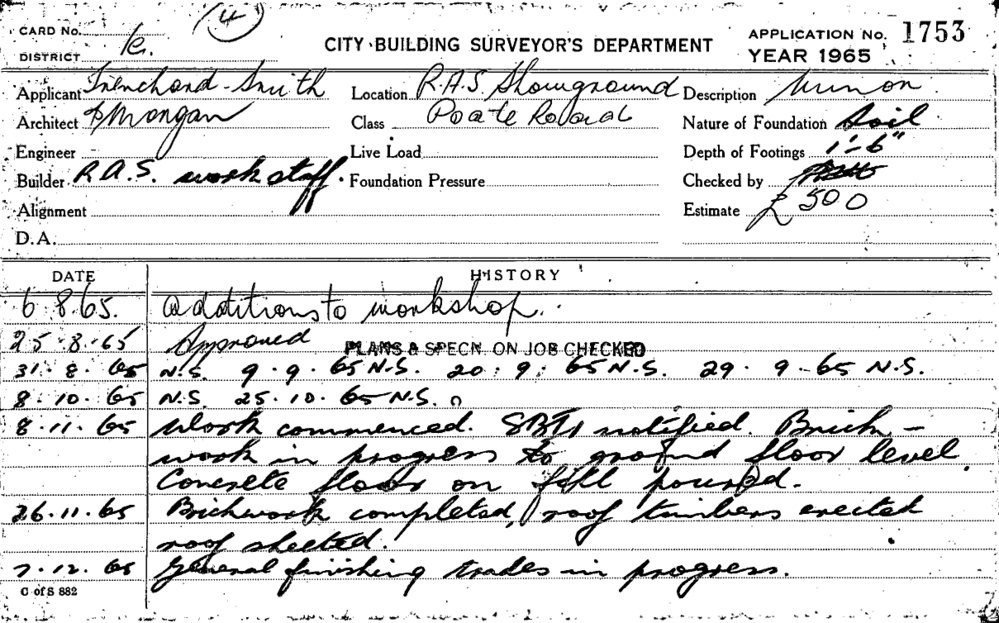 4
CARD No.
DISTRICT
CITY BUILDING SURVEYOR'S DEPARTMENT
APPLICATION No. 1753
YEAR 1965
Applicant Trenchard-Smith
Location R.A.S. Showground
Description Minor
Architect & Morgan
Class
Nature of Foundation Soil
Engineer
Live Load
Depth of Footings 1'-6"
Builder R.A.S. work staff.
Foundation Pressure
Checked by
Alignment
Estimate £500
D.A.
DATE HISTORY
6.8.65. Additions to workshop.
25.8.65 Approved PLANS & SPECN. ON JOB CHECKED
31.8.65 N.S. 9.9.65 N.S. 20.9.65 N.S. 29.9.65 N.S.
8.10.65 N.S. 25.10.65 N.S.
8.11.65 Work commenced. notified. Brick-
work in progress to ground floor level
Concrete floor on fill poured.
26.11.65 Brickwork completed, roof timbers erected
roof sheeted.
7.12.65 General finishing trades in progress.
C of S 882